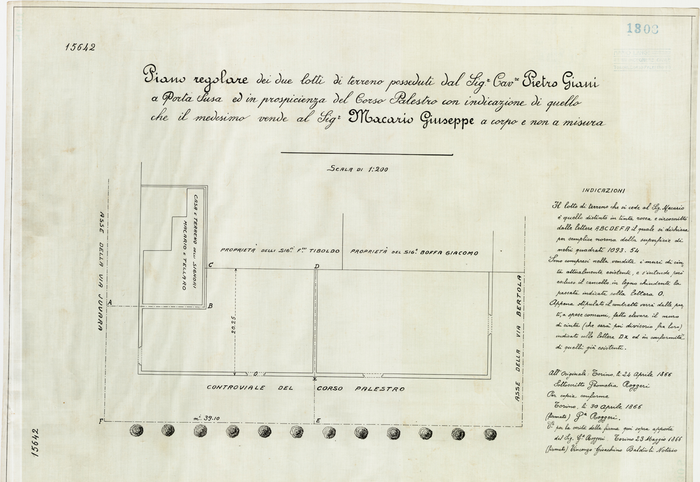 15642
1808
Piano regolare dei due lotti di terreno posseduti dal Sig.r Cav.re Pietro Giani
a Porta Susa ed in prospicienza del Corso Palestro con indicazione di quello
che il medesimo vende al Sig.r Macario Giuseppe a corpo e non a misura
SCALA DI 1:200
INDICAZIONI
Il lotto di terreno che si cede al Sig. Macario
è quello distinto in tinta rossa e circoscritto
dalle lettere ABCDEFA il quale si dichiara
per semplice norma della superficie di
metri quadrati 1093.54
Sono compresi nella vendita i muri di cin
ta attualmente esistenti, e s'intende poi
escluso il cancello in legno chiudente la
passata indicata colla lettera O.
Appena stipulato il contratto verrà dalle par
ti, a spese comuni, fatto elevare il muro
di cinta (che sarà poi divisorio fra loro)
indicato colle lettere DX ed in conformità
di quelli già esistenti.
All'Originale: Torino, li 24 Aprile 1866
Geometra Roggeri
Per copia conforme
Torino, li 30 Aprile 1866
(firmato) G.a Roggeri.
V.o per la verità della firma qui sopra apposta
del Sig. G.a Roggeri Torino 23 Maggio 1866
(firmato) Vincenzo Gioachino Baldioli Notaio
ASSE DELLA VIA JUVARA
CASA E TERRENO DELLI SIGNORI
MACARIO E
PROPRIETÀ DELLI SIG.RI F.LLI TIBOLDO
PROPRIETÀ DEL SIG.R BOFFA GIACOMO
C
D
A
B
20.25
ASSE DELLA VIA BERTOLA
O
X
CONTROVIALE DEL CORSO PALESTRO
m.i 39.10
F
E
15642